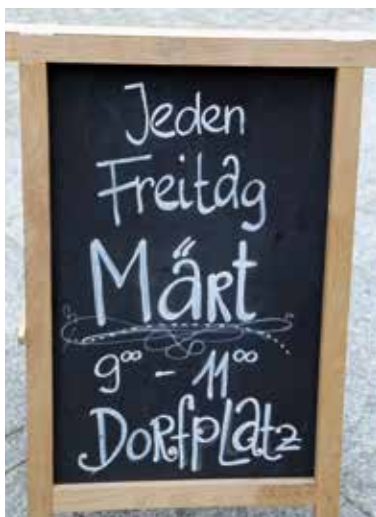 Jeden
Freitag
Märt
9⁰⁰ - 11⁰⁰
Dorfplatz